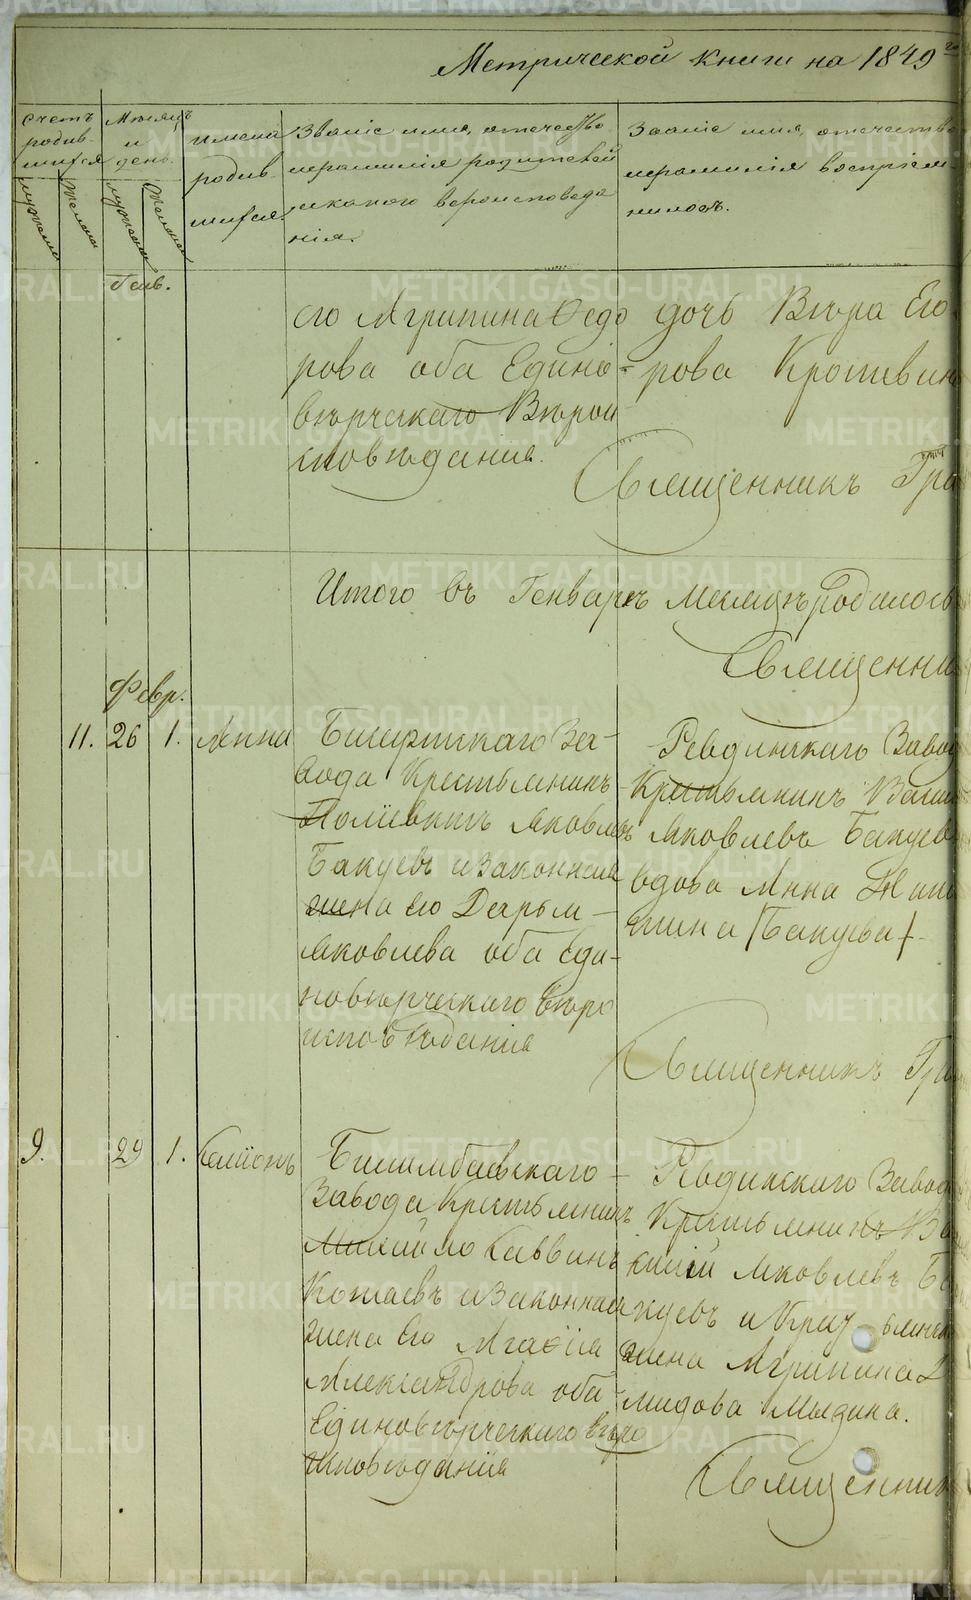 Метрической книги на 1849 го
Счетъ родив-шихся
мужеска
женска
Мѣсяцъ и день.
мужеска
женска
имена родив шихся.
Званіе имя, отечество
и фамилія родителей
и какого вѣроисповеда
нія.
Званіе имя, отечество
и фамилія воспріем-
никовъ.
Генв.
его Агрипина Федо
рова оба Едино-
вѣрческаго Вѣрои
сповѣданія.
дочь Вѣра Его
рова Кропивин
Священникъ Гра
Итого въ Генварѣ месяцѣ родилось
Священни
Февр.
11. 26 1. Анна
Бисертскаго За-
вода Крестьянинъ
Полиевктъ Яковлевъ
Бакуевъ и законная
жена его Дарья
Яковлева оба Еди-
новѣрческаго вѣро
исповѣданія
Ревдинскаго Завод
Крестьянинъ Васил
Яковлевъ Бакуев
вдова Анна
шина /Бакуева/.
Священникъ Гра
9. 29 1.
Билимбаевскаго
Завода Крестьянинъ
Михайло Саввинъ
Котаевъ и законная
жена его Агафія
Александрова оба
Единовѣрческаго вѣро
исповѣданія
Ревдинскаго Завод
Крестьянинъ Ва
силій Яковлевъ Ба
куевъ и Крестьянск
жена Агрипина
мидова Мызина.
Священник
METRIKI.GASO-URAL.RU